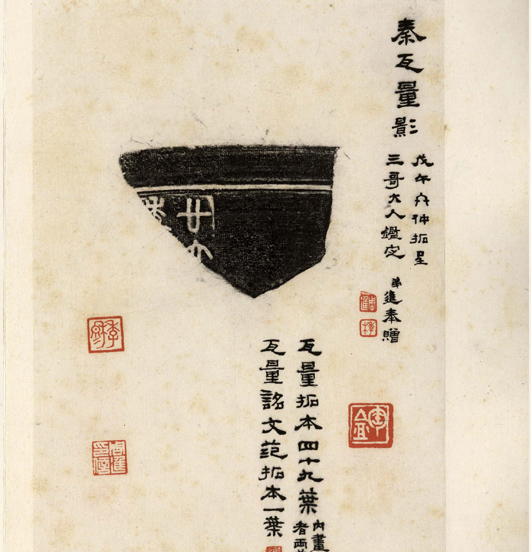 秦瓦量影
戊午六仲拓呈
三哥大人鑑定
弟進奉贈
瓦量拓本四十九葉
内畫
者兩
瓦量詺文范拓本一葉
廿六